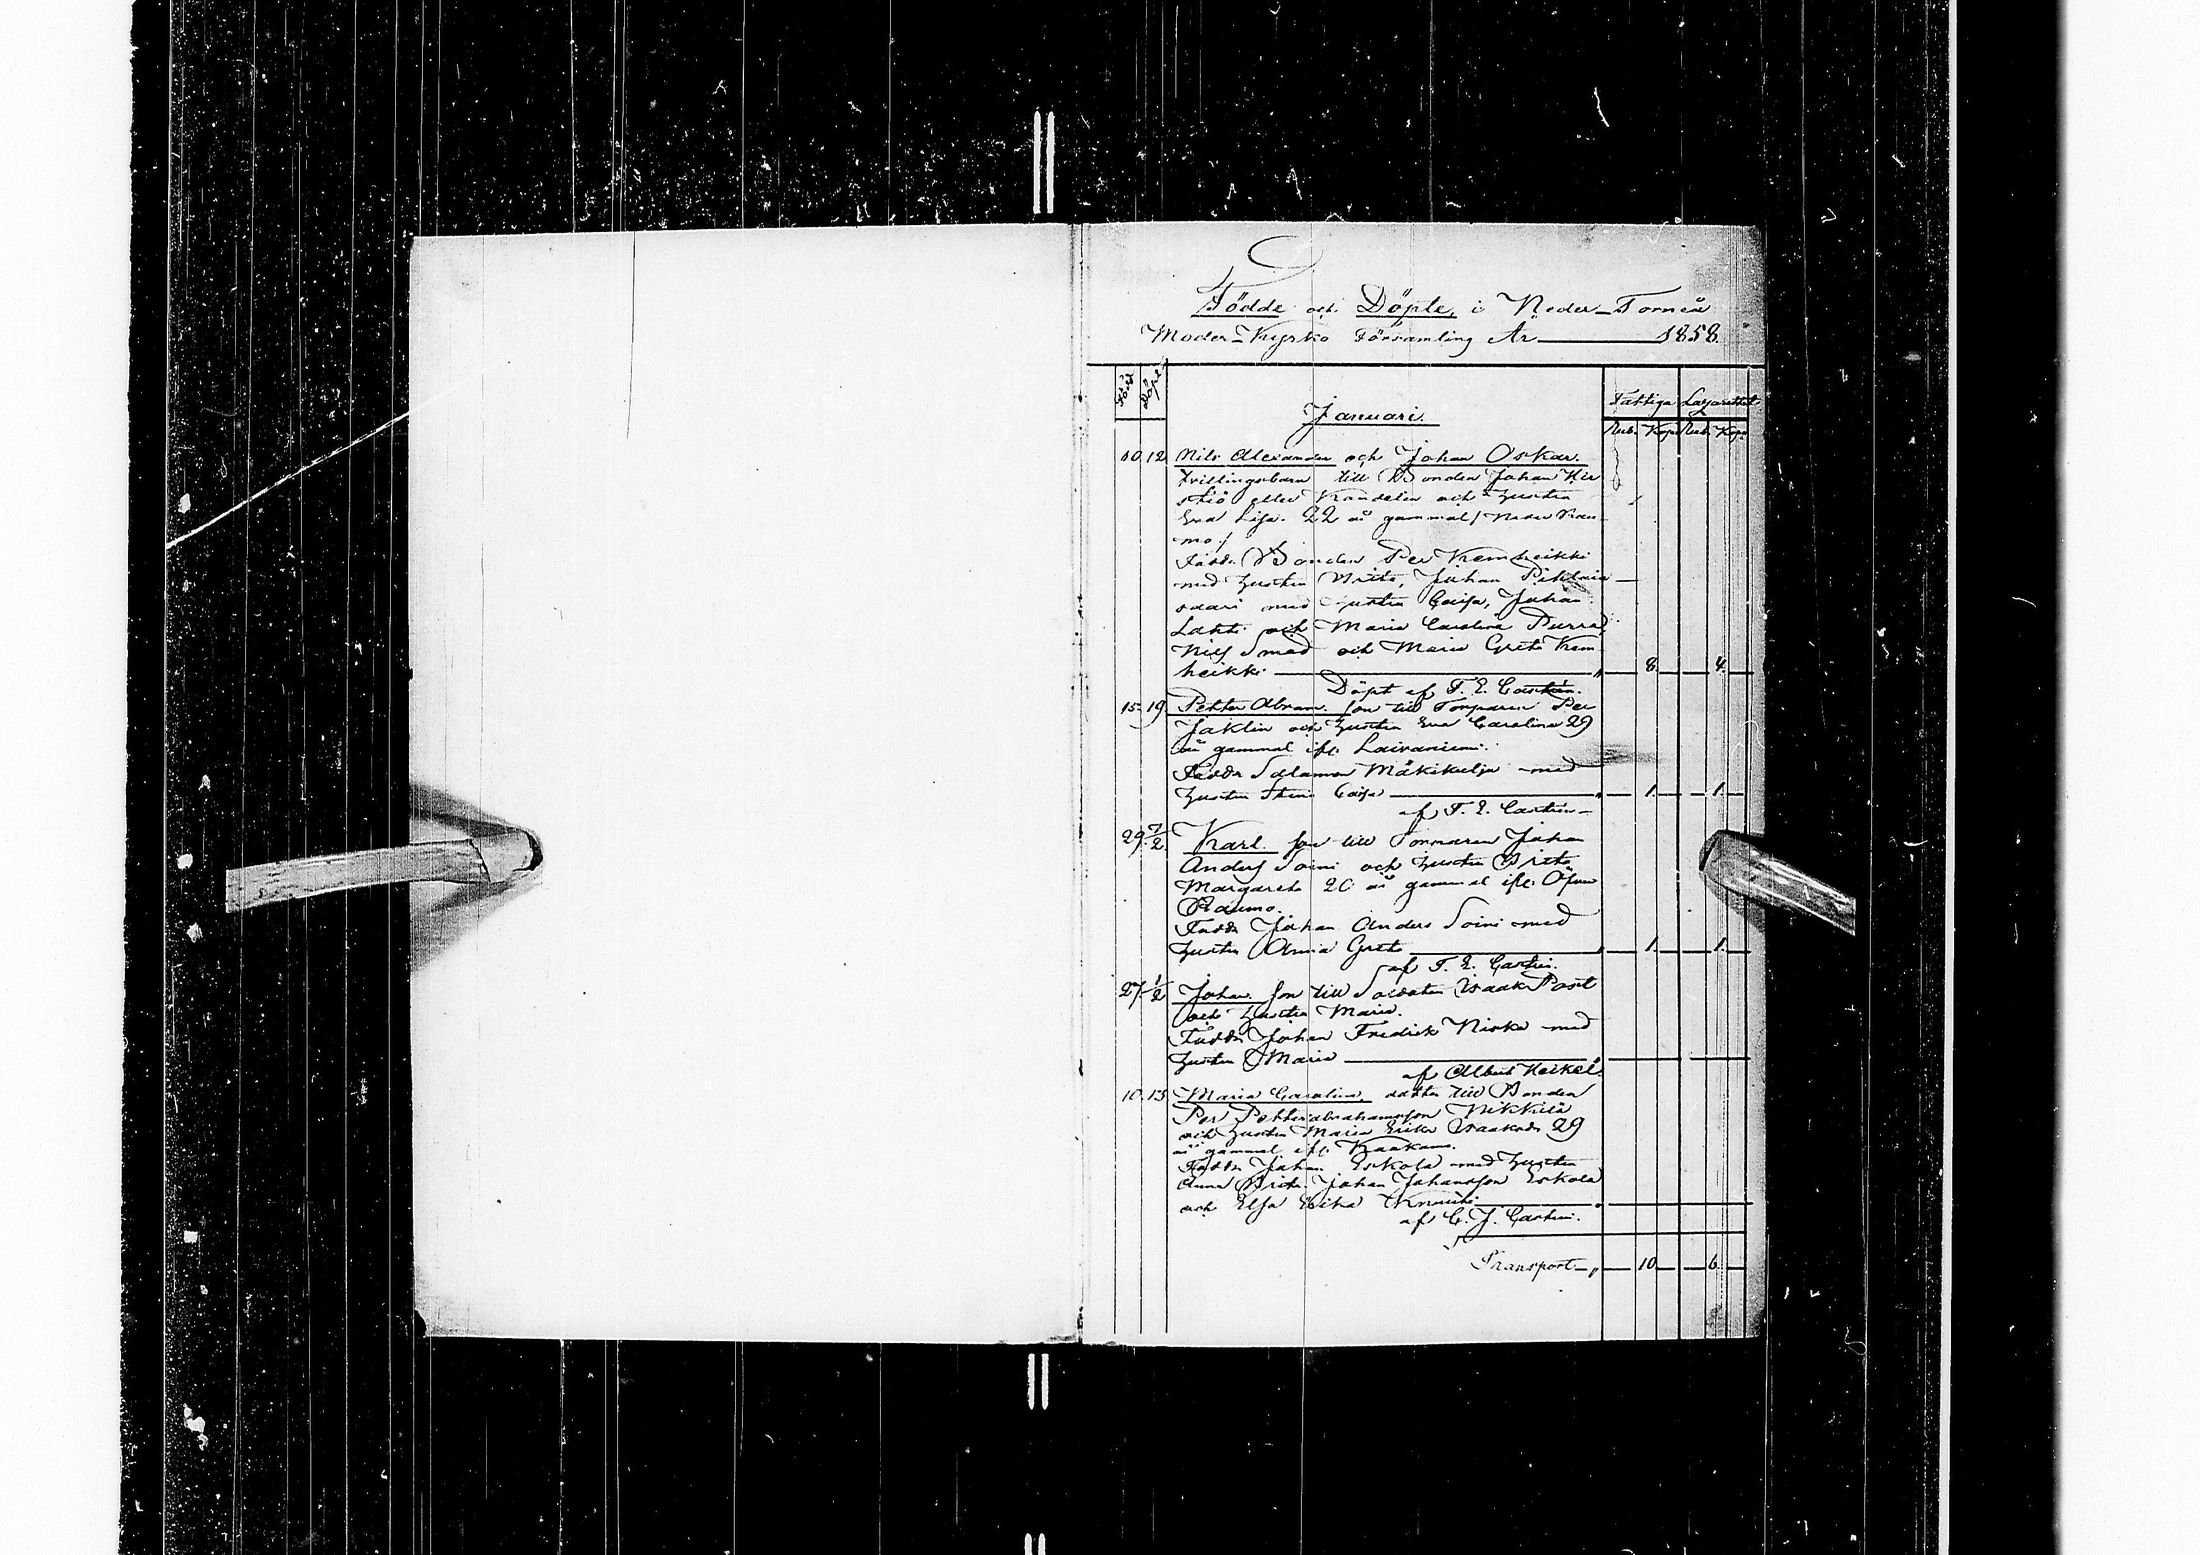 Födde och Döpte, i Neder-Torneå
Moder-Kyrko Församling År 1858.
Född Döpt Fattiga Lazarettet
Januari. Rub. Kop. Rub. Kop.
10. 12. Nils Alexander och Johan Oskar.
tvillingsbarn till Bonden Johan
eller Kandelin och hustru
Eva Lisa. 22 år gammal / Neder Rau-
mo /
Fadd: Bonden Per Kemheikki
med hustru Brita, Johan
saari med hustru Caisa, Johan
Lahti och Maria Carolina Purra,
Nils Smed och Maria Greta Kem
heikki " 8. 4.
Döpt af F. E. Castrén.
15. 19. Petter Abram. son till Torparen Per
Jaklin och hustru Eva Carolina 29
år gammal ifr. Laivaniemi.
Fadd: Salamon Mäkikulju med
hustru Stina Caisa " 1. 1.
af F. E. Castrén
29. 7/2 Karl. son till Torparen Johan
Anders Soini och hustru Brita
Margareta 20 år gammal ifr. Öfver
Raumo.
Fadd: Johan Anders Soini med
hustru Anna Greta " 1. 1.
af F. E. Castrén.
27. 1/2 Johan. son till Soldaten Isaak Post
och hustru Maria.
Fadd: Johan Fredrik Niska med
hustru Maria "
af Albert Heikel.
10. 13. Maria Carolina, dotter till Bonden
Per Petter Abrahamsson Nikkilä
och hustru Maria Erika Isaaksdr 29
år gammal ifr. Kaakamo.
Fadd: Johan Eskola med hustru
Anna Brita. Johan Johansson Eskola
och Elsa Knuuti "
af C. J. Castrén.
Transport " 10. 6.